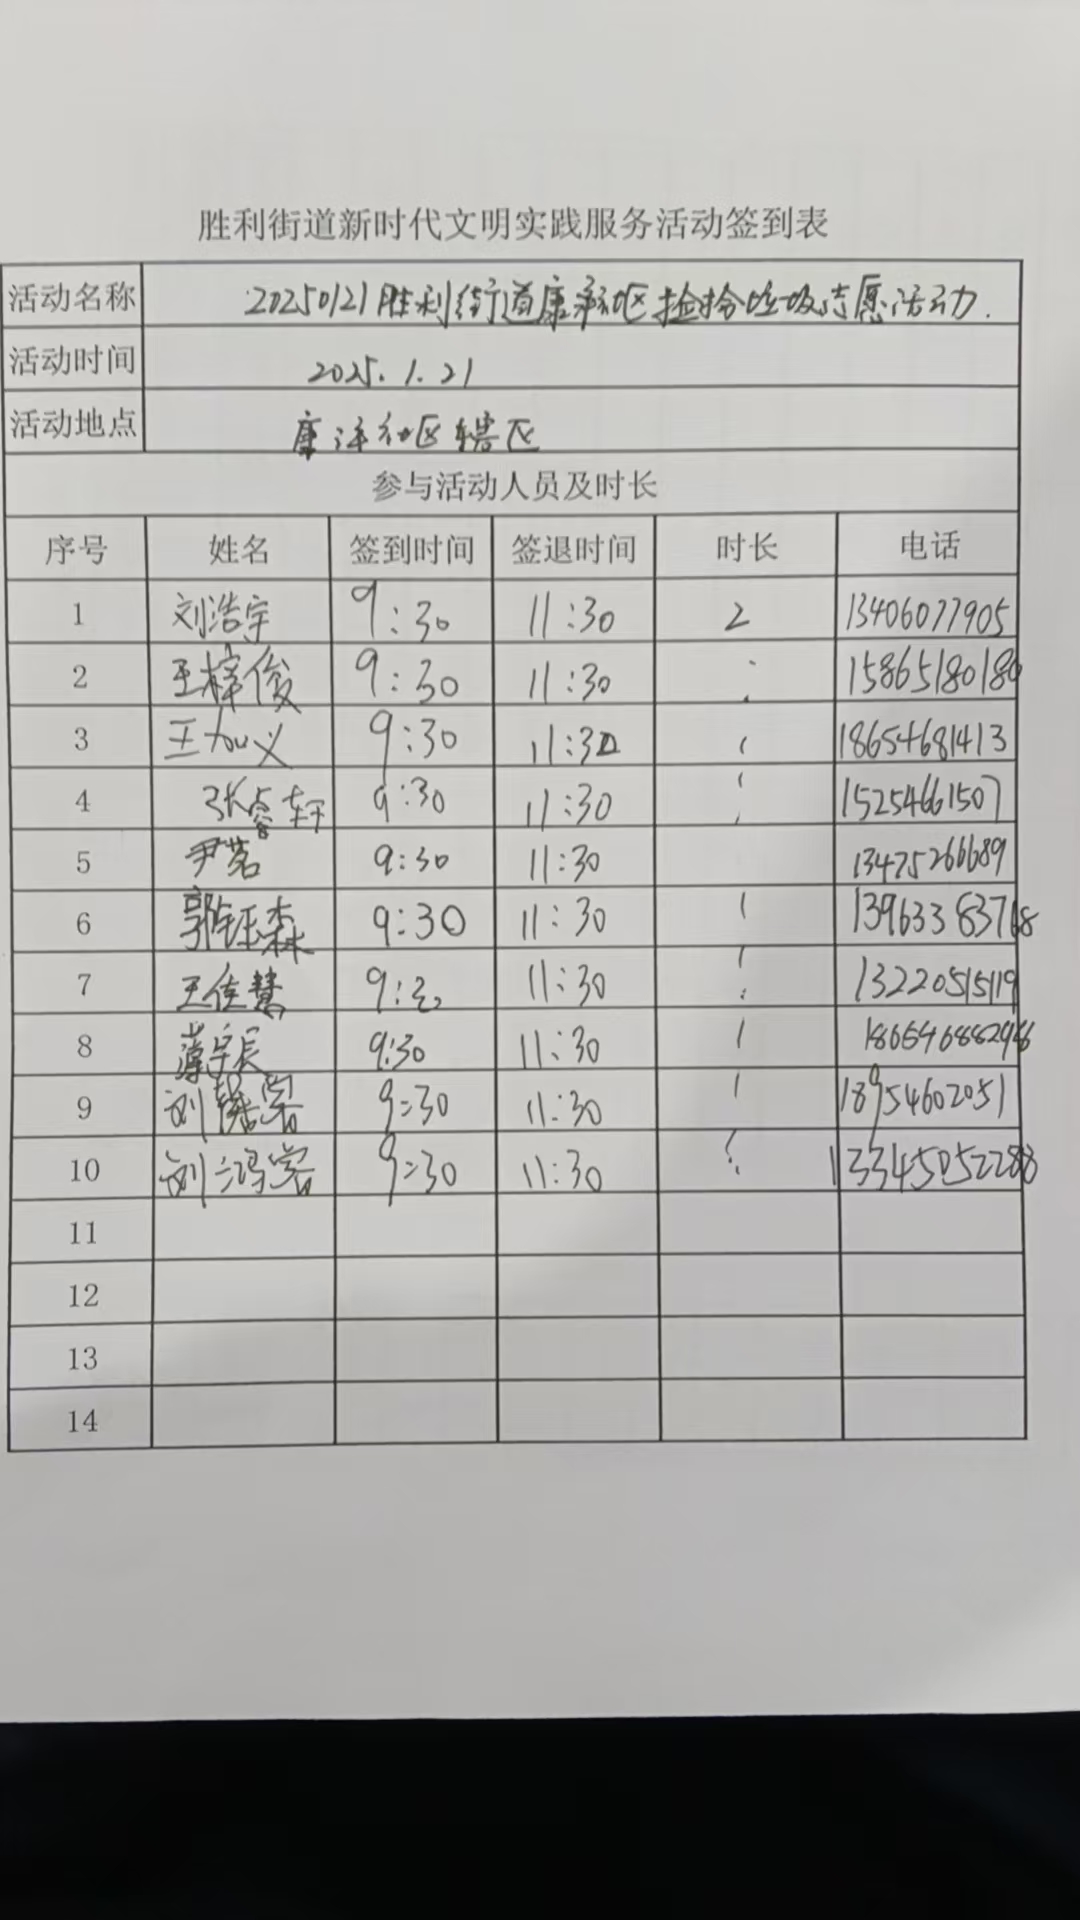 胜利街道新时代文明实践服务活动签到表
活动名称 20250121胜利街道康洋社区捡拾垃圾志愿活动.
活动时间 2025.1.21
活动地点 康洋社区辖区
参与活动人员及时长
序号 姓名 签到时间 签退时间 时长 电话
1 刘浩宇 9:30 11:30 2 13406077905
2 王梓俊 9:30 11:30 15865180180
3 王加义 9:30 11:30 18654681413
4 张睿轩 9:30 11:30 15254661507
5 尹茗 9:30 11:30 13475266689
6 郭钰森 9:30 11:30
7 王佳慧 9:30 11:30 13220515119
8 薄宇辰 9:30 11:30
9 刘 9:30 11:30 18954602051
10 刘 9:30 11:30
11
12
13
14